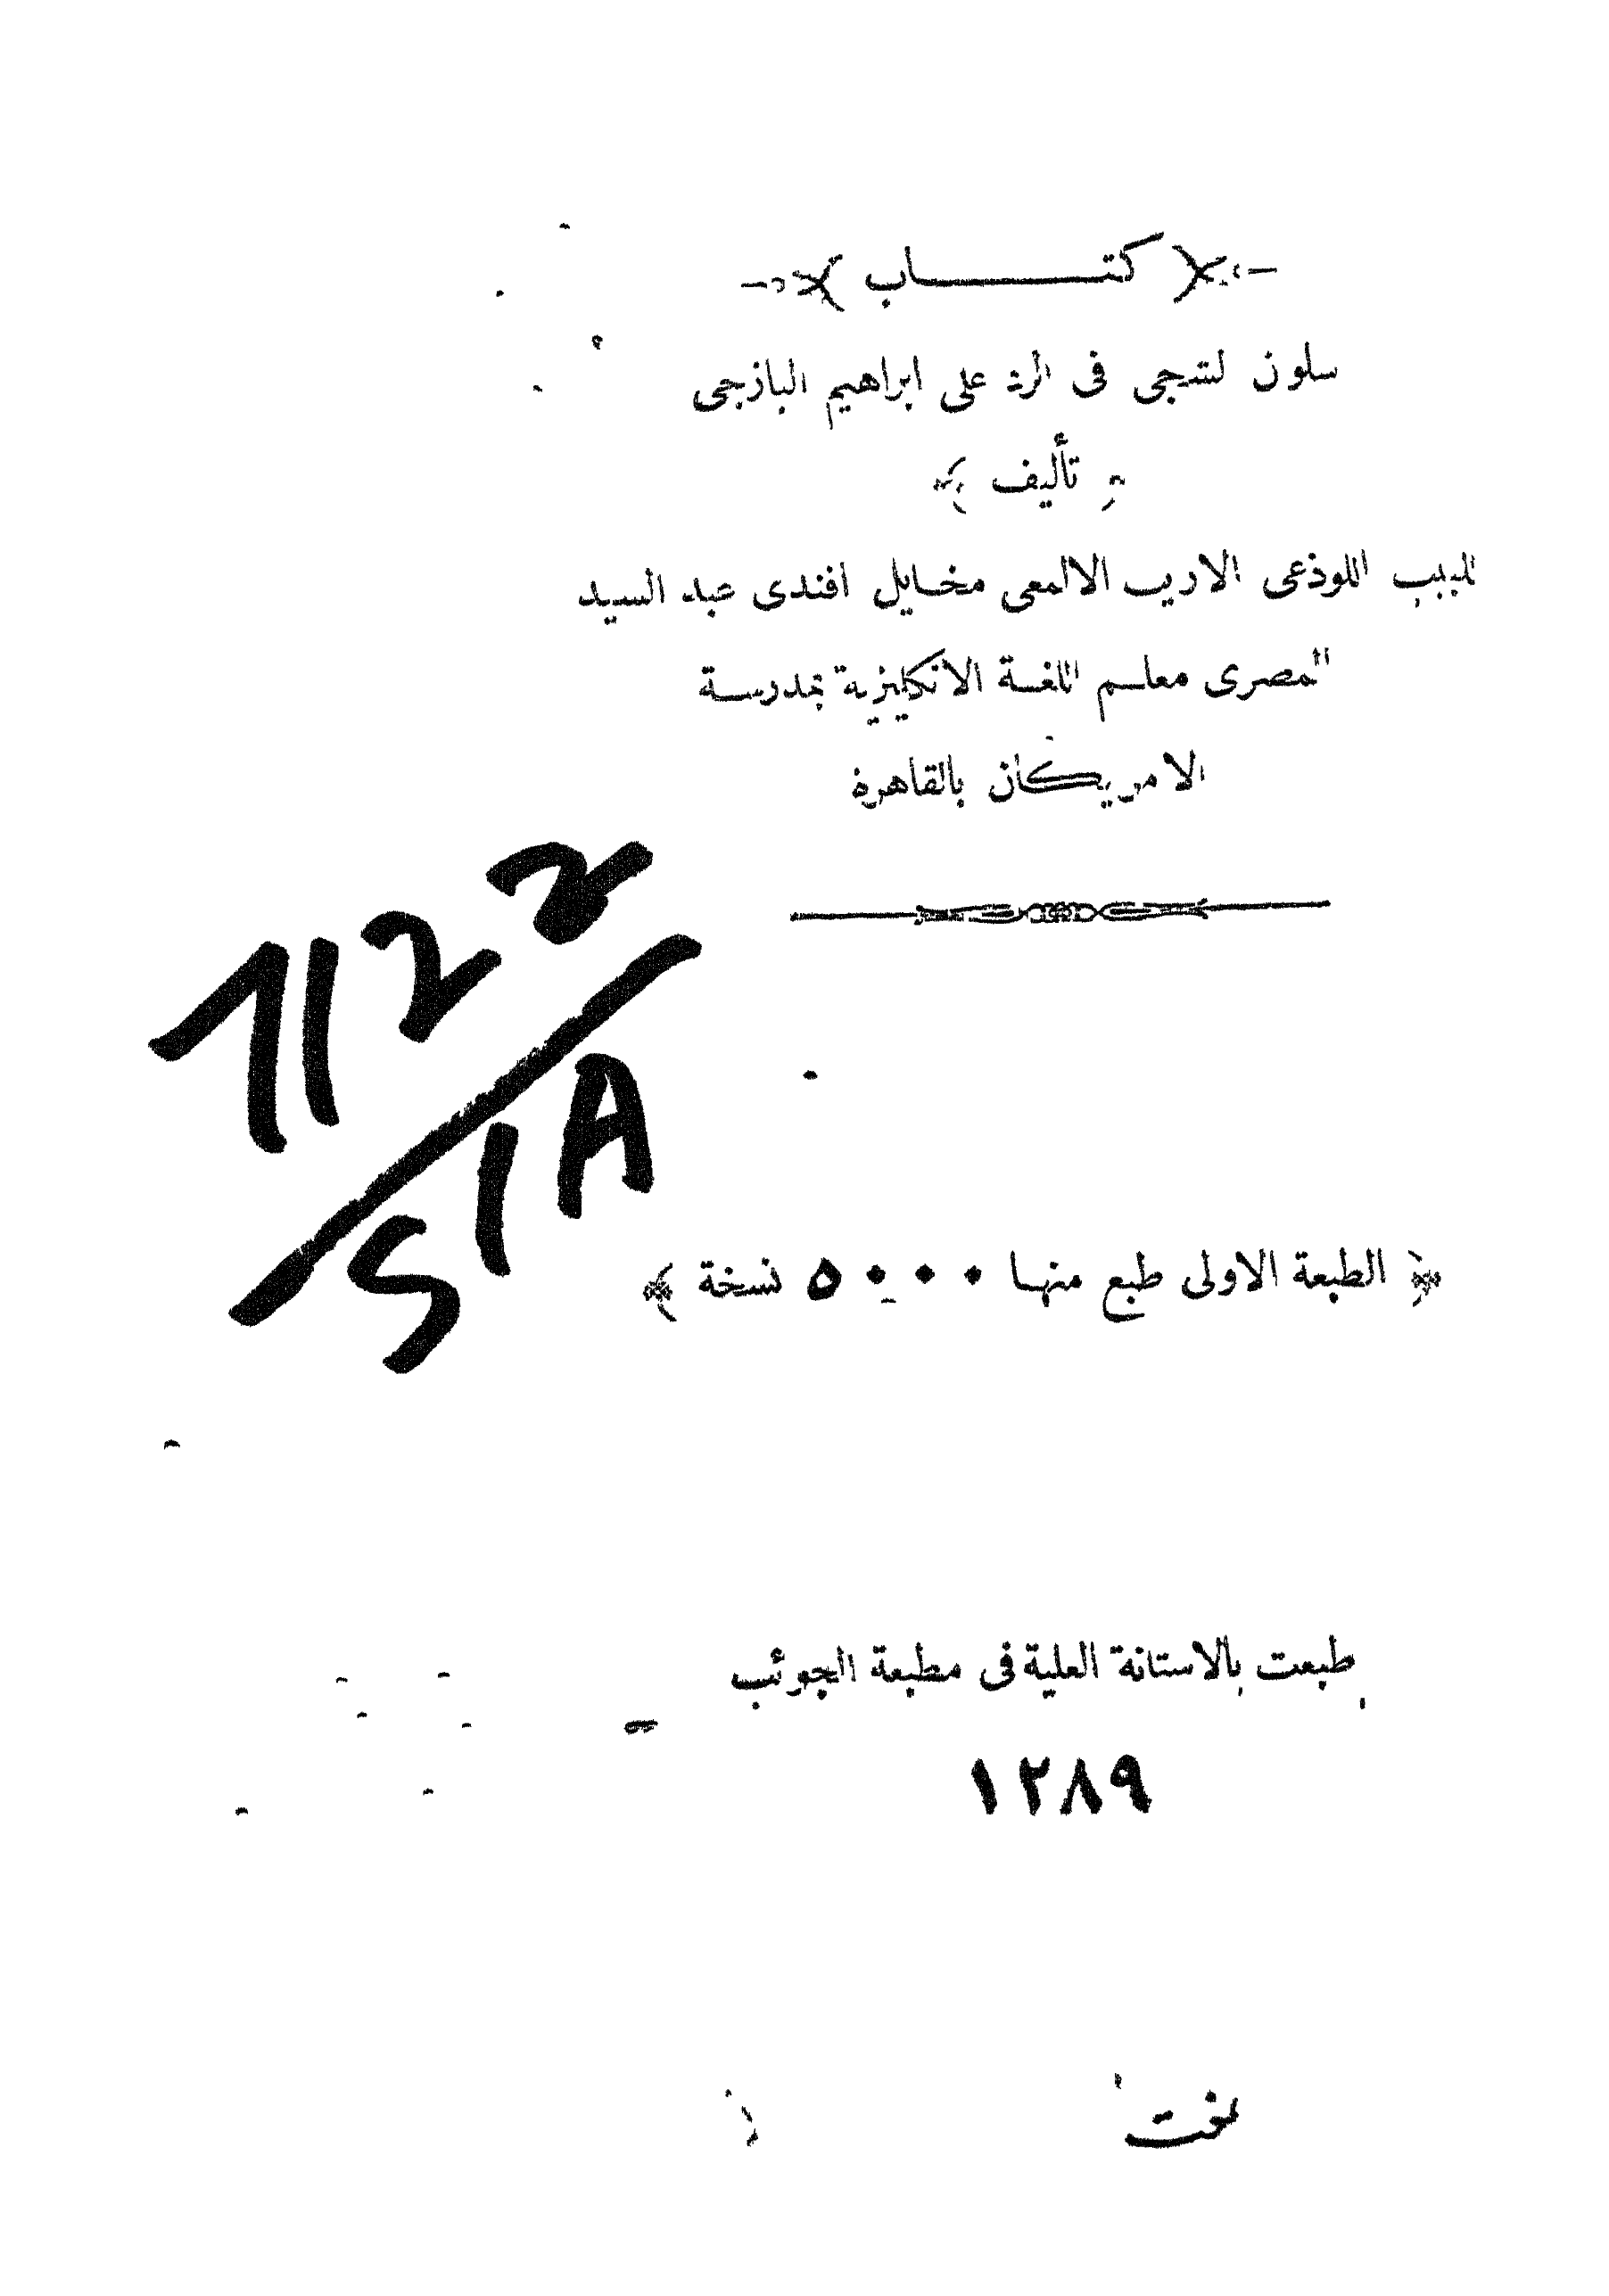 كتاب
سلون لشجى فى الرد على ابراهيم اليازجى
﴿ تأليف ﴾
للبيب اللوذعى الاريب الالمعى مخايل افندى عبد السيد
المصرى معلم اللغة الانكليزية بمدرسة
الامريكان بالقاهرة
7122
51A
﴿ الطبعة الاولى طبع منها ٥٠٠٠ نسخة ﴾
طبعت بالاستانة العلية فى مطبعة الجوئب
١٢٨٩